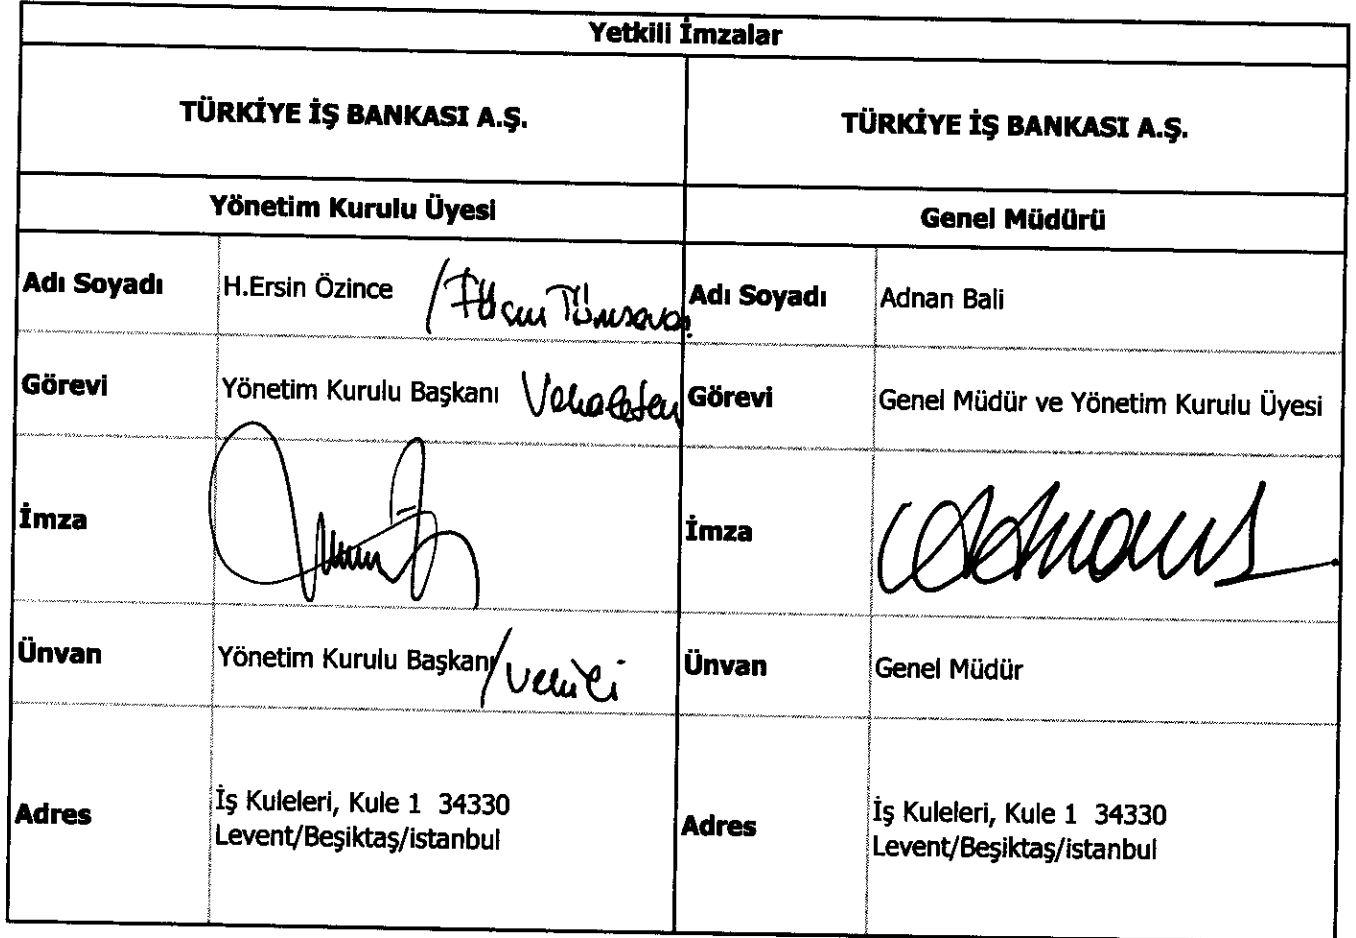 Yetkili İmzalar
TÜRKİYE İŞ BANKASI A.Ş.
TÜRKİYE İŞ BANKASI A.Ş.
Yönetim Kurulu Üyesi
Genel Müdürü
Adı Soyadı H.Ersin Özince /Füsun Tümsavaş
Adı Soyadı Adnan Bali
Görevi Yönetim Kurulu Başkanı Vekaleten
Görevi Genel Müdür ve Yönetim Kurulu Üyesi
İmza
İmza
Ünvan Yönetim Kurulu Başkanı/Vekili
Ünvan Genel Müdür
Adres İş Kuleleri, Kule 1 34330
Levent/Beşiktaş/istanbul
Adres İş Kuleleri, Kule 1 34330
Levent/Beşiktaş/istanbul